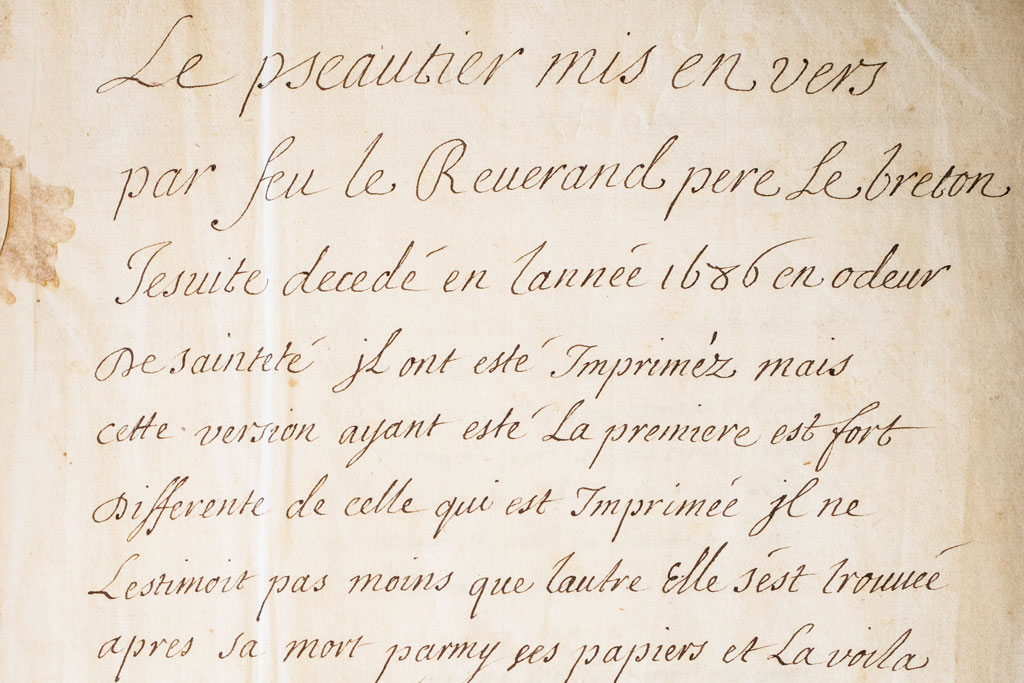 Le pseautier mis en vers
par feu le Reuerand pere Le breton
Jesuite decedé en lannée 1686 en odeur
De sainteté jl ont esté Impriméz mais
cette version ayant esté La premiere est fort
Differente de celle qui est Imprimée jl ne
Lestimoit pas moins que lautre Elle sést trouuée
apres sa mort parmy ses papiers et La voila